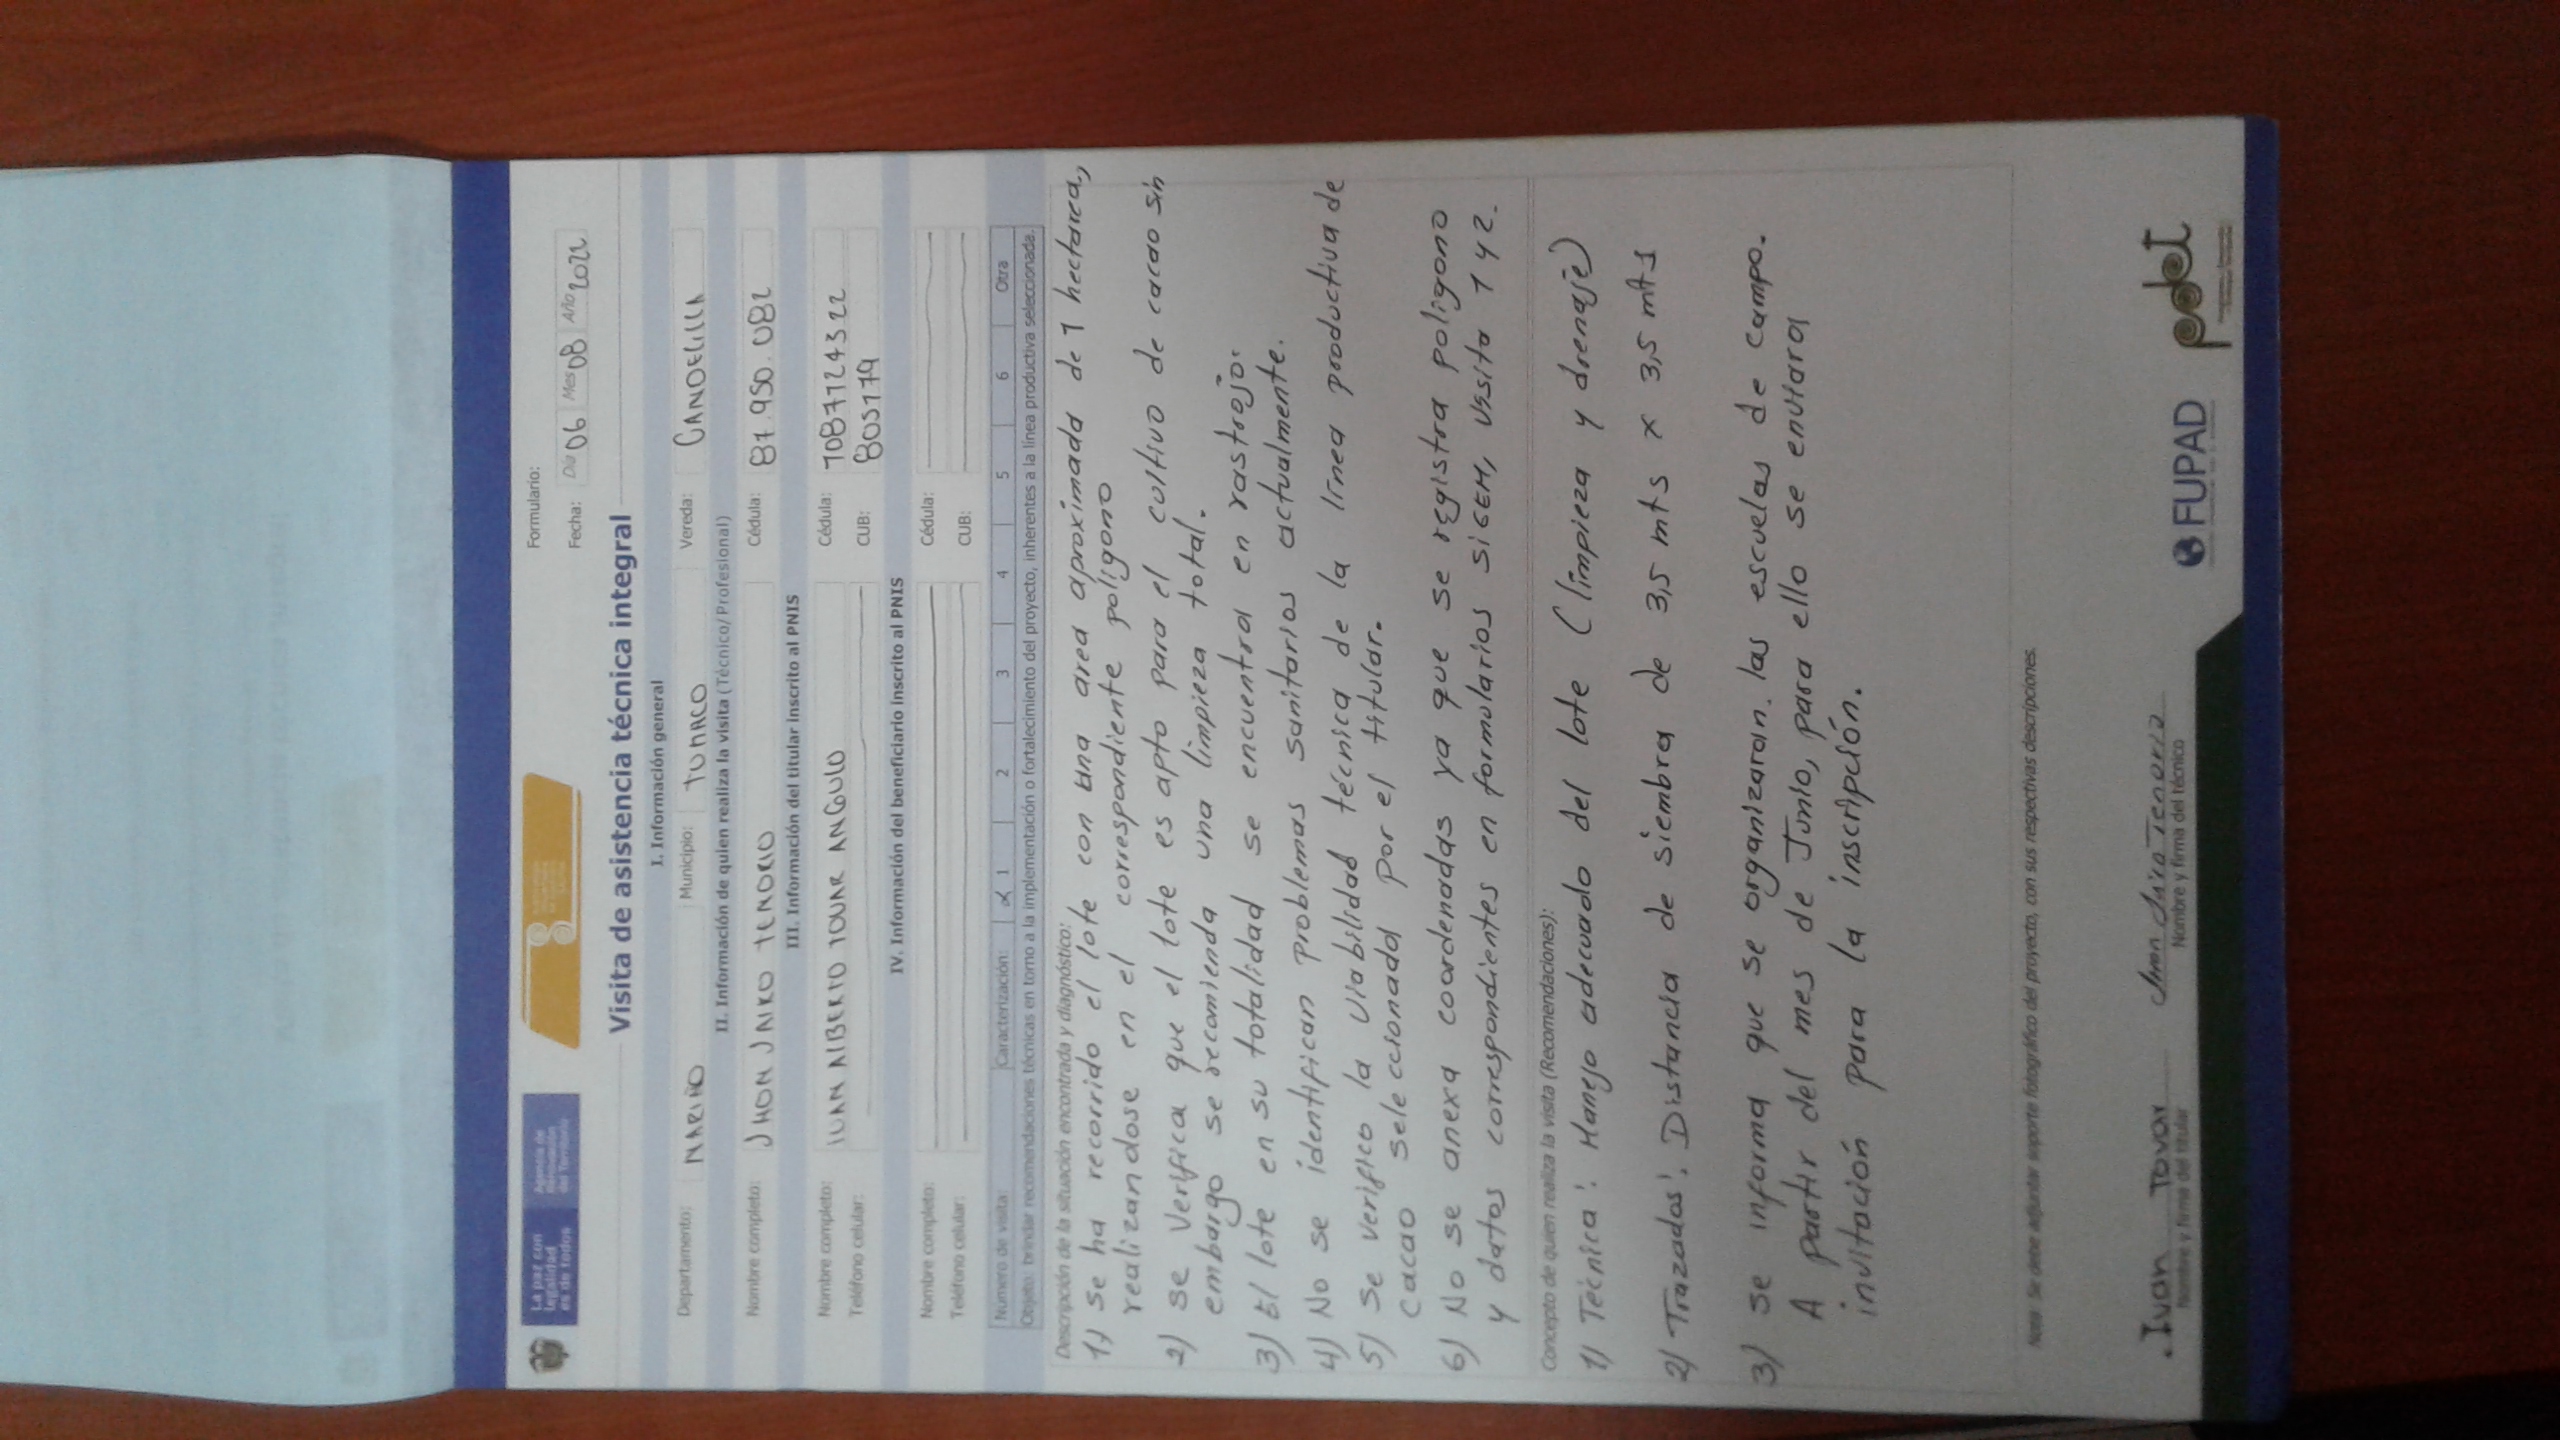 La paz con
legalidad
es de todos
Agencia de
Renovación
del Territorio
Formulario:
Fecha: Día 06 Mes 08 Año 2022
Visita de asistencia técnica integral
I. Información general
Departamento: NARIÑO Municipio: TUMACO Vereda: CANDELILLA
II. Información de quien realiza la visita (Técnico/ Profesional)
Nombre completo: JHON JAIRO TENORIO Cédula: 87.950.082
III. Información del titular inscrito al PNIS
Nombre completo: IVAN ALBERTO TOVAR ANGULO Cédula: 1087124322
Teléfono celular: CUB: 805179
IV. Información del beneficiario inscrito al PNIS
Nombre completo: Cédula:
Teléfono celular: CUB:
Número de visita: Caracterización: X 1 2 3 4 5 6 Otra
Objeto: brindar recomendaciones técnicas en torno a la implementación o fortalecimiento del proyecto, inherentes a la línea productiva seleccionada.
Descripción de la situación encontrada y diagnóstico:
1) se ha recorrido el lote con una area aproximada de 1 hectarea,
realizandose en el correspondiente poligono
2) se verifica que el lote es apto para el cultivo de cacao sin
embargo se recomienda una limpieza total.
3) El lote en su totalidad se encuentra en rastrojo.
4) No se identifican problemas sanitarios actualmente.
5) se verifico la viabilidad técnica de la línea productiva de
cacao seleccionada por el titular.
6) No se anexa coordenadas ya que se registra poligono
y datos correspondientes en formularios SIGEM, visita 1 y 2.
Concepto de quien realiza la visita (Recomendaciones):
1) Técnica: Manejo adecuado del lote (limpieza y drenaje)
2) Trazados: Distancia de siembra de 3,5 mts x 3,5 mts
3) se informa que se organizaran las escuelas de campo.
A partir del mes de Junio, para ello se enviara
invitación para la inscripción.
Nota: Se debe adjuntar soporte fotográfico del proyecto, con sus respectivas descripciones.
Ivan Tovar
Nombre y firma del titular
Jhon Jairo Tenorio
Nombre y firma del técnico
FUPAD
pdet